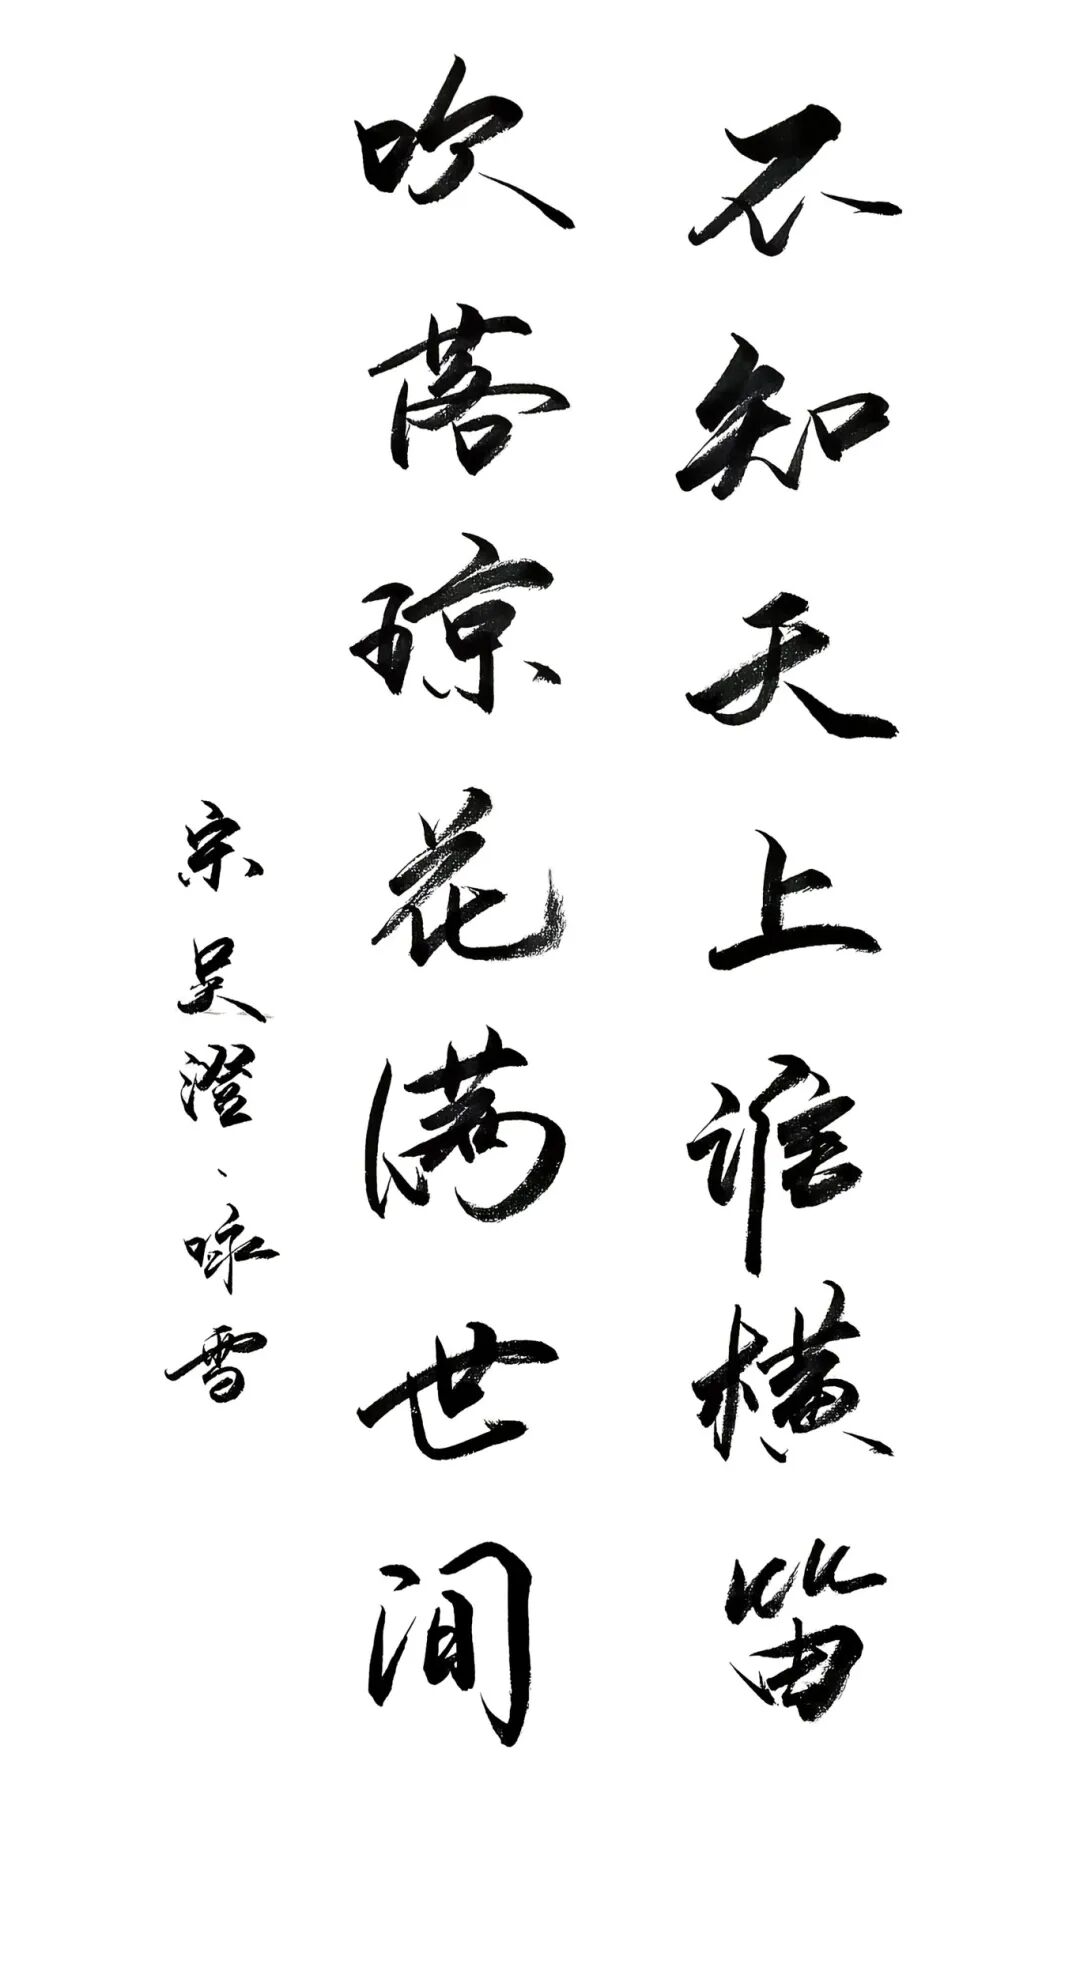 不知天上谁横笛
吹落琼花满世间
宋吴澄·咏雪